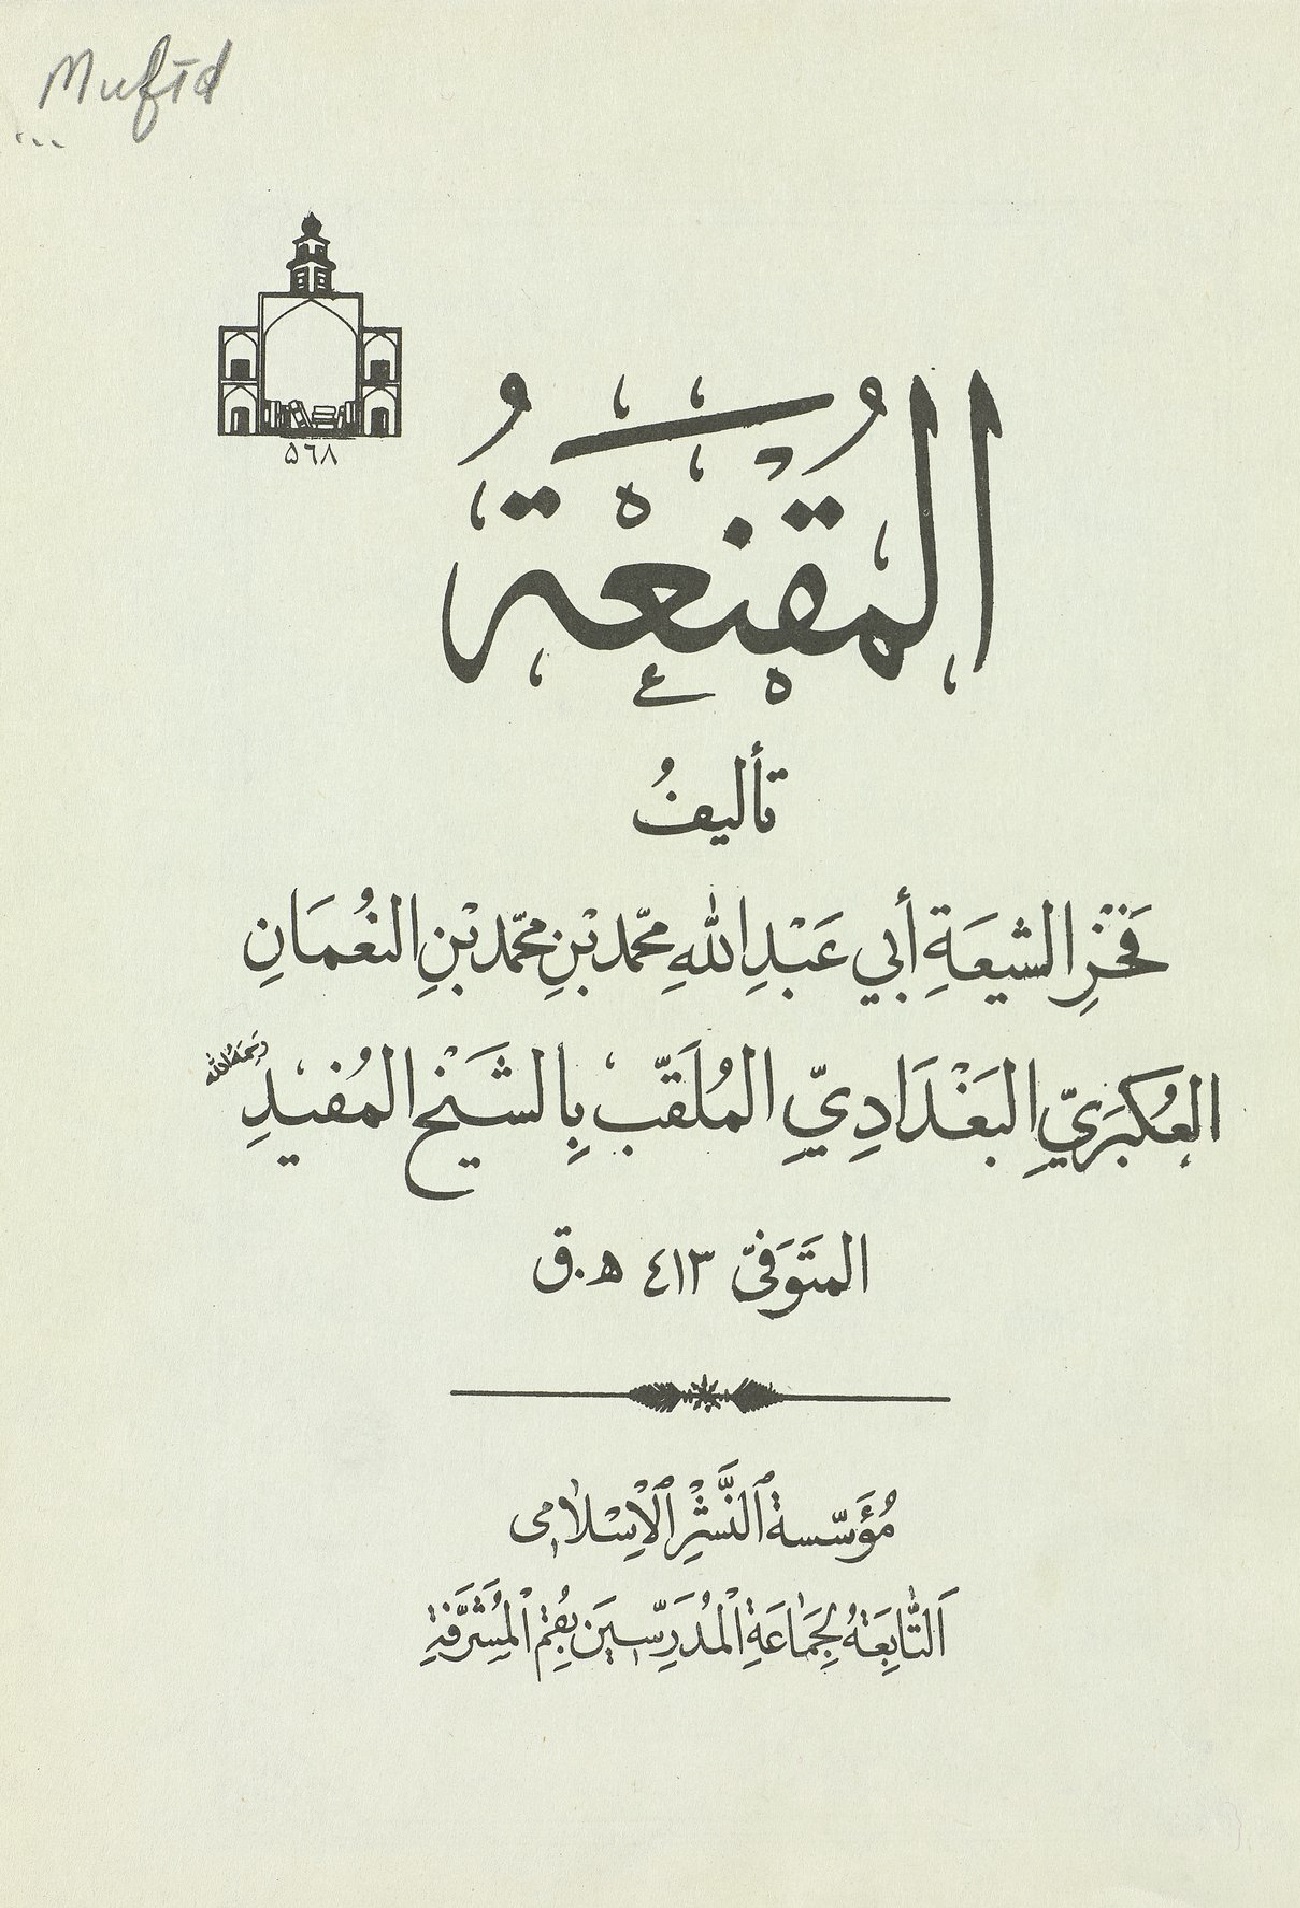 Mufīd
۵٦٨
المُقْنِعَةُ
تأليفُ
فَخْرِ الشيعَةِ أبي عَبْدِ اللهِ محمّد بْنِ محمّد بْنِ النُعْمَانِ
العُكبَرِيّ البَغْدَادِيّ المُلَقّب بِالشَيْخ المُفيدِ رحمهُ الله
المتَوَفىّ ٤١٣ ه.ق
مُؤَسّسة ٱلنَّشْرِ ٱلْإِسْلامى
اَلتّابِعَةُ لِجَماعَةِ الْمُدَرِّسينَ بِقُم الْمُشَرَّفَةِ